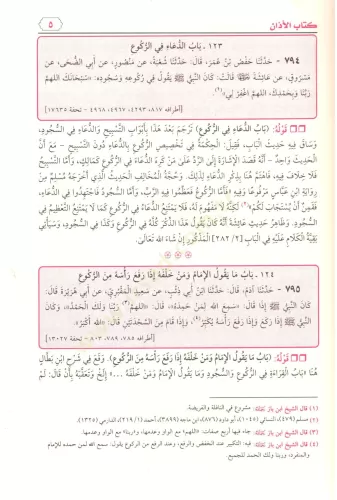 كتاب الأذان
٥
١٢٣ ـ بَابُ الدُّعَاءِ فِي الرُّكُوعِ
٧٩٤ - حَدَّثَنَا حَفْصُ بْنُ عُمَرَ، قَالَ: حَدَّثَنَا شُعْبَةُ، عَنْ مَنْصُورٍ، عَنْ أَبِي الضُّحَى، عَنْ
مَسْرُوقٍ، عَنْ عَائِشَةَ قَالَتْ: كَانَ النَّبِيُّ ﷺ يَقُولُ فِي رُكُوعِهِ وَسُجُودِهِ: «سُبْحَانَكَ اللَّهُمَّ
رَبَّنَا وَبِحَمْدِكَ، اللَّهُمَّ اغْفِرْ لِي».
[أطرافه ٨١٧، ٤٢٩٣، ٤٩٦٧، ٤٩٦٨ - ١٧٦٣٥]
قَوْلُهُ: (بَابُ الدُّعَاءِ فِي الرُّكُوعِ) تَرْجَمَ بَعْدَ هَذَا بِأَبْوَابِ التَّسْبِيحِ وَالدُّعَاءِ فِي السُّجُودِ،
وَسَاقَ فِيهِ حَدِيثَ الْبَابِ، فَقِيلَ: الْحِكْمَةُ فِي تَخْصِيصِ الرُّكُوعِ بِالدُّعَاءِ دُونَ التَّسْبِيحِ - مَعَ أَنَّ
الْحَدِيثَ وَاحِدٌ - أَنَّهُ قَصَدَ الْإِشَارَةَ إِلَى الرَّدِّ عَلَى مَنْ كَرِهَ الدُّعَاءَ فِي الرُّكُوعِ كَمَالِكٍ، وَأَمَّا التَّسْبِيحُ
فَلَا خِلَافَ فِيهِ، فَاهْتَمَّ هُنَا بِذِكْرِ الدُّعَاءِ لِذَلِكَ. وَحُجَّةُ الْمُخَالِفِ الْحَدِيثُ الَّذِي أَخْرَجَهُ مُسْلِمٌ مِنْ
رِوَايَةِ ابْنِ عَبَّاسٍ مَرْفُوعًا وَفِيهِ: «فَأَمَّا الرُّكُوعُ فَعَظِّمُوا فِيهِ الرَّبَّ، وَأَمَّا السُّجُودُ فَاجْتَهِدُوا فِي الدُّعَاءِ،
فَقَمِنٌ أَنْ يُسْتَجَابَ لَكُمْ» لَكِنَّهُ لَا مَفْهُومَ لَهُ، فَلَا يَمْتَنِعُ الدُّعَاءُ فِي الرُّكُوعِ كَمَا لَا يَمْتَنِعُ التَّعْظِيمُ فِي
السُّجُودِ. وَظَاهِرُ حَدِيثِ عَائِشَةَ أَنَّهُ كَانَ يَقُولُ هَذَا الذِّكْرَ كُلَّهُ فِي الرُّكُوعِ وَكَذَا فِي السُّجُودِ، وَسَيَأْتِي
بَقِيَّةُ الْكَلَامِ عَلَيْهِ فِي الْبَابِ [٢/ ٢٨٢] الْمَذْكُورِ إِنْ شَاءَ اللهُ تَعَالَى.
١٢٤ ـ بَابُ مَا يَقُولُ الْإِمَامُ وَمَنْ خَلْفَهُ إِذَا رَفَعَ رَأْسَهُ مِنَ الرُّكُوعِ
٧٩٥ - حَدَّثَنَا آدَمُ، قَالَ: حَدَّثَنَا ابْنُ أَبِي ذِئْبٍ، عَنْ سَعِيدٍ الْمَقْبُرِيِّ، عَنْ أَبِي هُرَيْرَةَ قَالَ:
كَانَ النَّبِيُّ ﷺ إِذَا قَالَ: «سَمِعَ اللهُ لِمَنْ حَمِدَهُ». قَالَ: «اللَّهُمَّ رَبَّنَا وَلَكَ الْحَمْدُ»، وَكَانَ
النَّبِيُّ ﷺ إِذَا رَكَعَ وَإِذَا رَفَعَ رَأْسَهُ يُكَبِّرُ، وَإِذَا قَامَ مِنَ السَّجْدَتَيْنِ قَالَ: «الله أَكْبَرُ».
[أطرافه ٧٨٥، ٧٨٩، ٨٠٣ - ١٣٠٢٧]
قَوْلُهُ: (بَابُ مَا يَقُولُ الْإِمَامُ وَمَنْ خَلْفَهُ إِذَا رَفَعَ رَأْسَهُ مِنَ الرُّكُوعِ). وَقَعَ فِي شَرْحِ ابْنِ بَطَّالٍ
هُنَا «بَابُ الْقِرَاءَةِ فِي الرُّكُوعِ وَالسُّجُودِ وَمَا يَقُولُ الْإِمَامُ وَمَنْ خَلْفَهُ ...» إِلَخْ وَتَعَقَّبَهُ بِأَنْ قَالَ: لَمْ
(١) قال الشيخ ابن باز: مشروع في النافلة والفريضة.
(٢) مسلم (٤٧٩)، النسائي (١٠٤٥)، أبو داود (٨٧٦)، ابن ماجه (٣٨٩٩)، أحمد (٢١٩/١)، الدارمي (١٣٢٥).
(٣) قال الشيخ ابن باز: جاء فيها أربع صفات: «اللهم» مع الواو وعدمها، و«ربنا» مع الواو وعدمها.
(٤) قال الشيخ ابن باز: فيه: التكبير عند الخفض والرفع، وعند الرفع من الركوع يقول: سمع الله لمن حمده للإمام
والمنفرد، وربنا ولك الحمد للجميع.